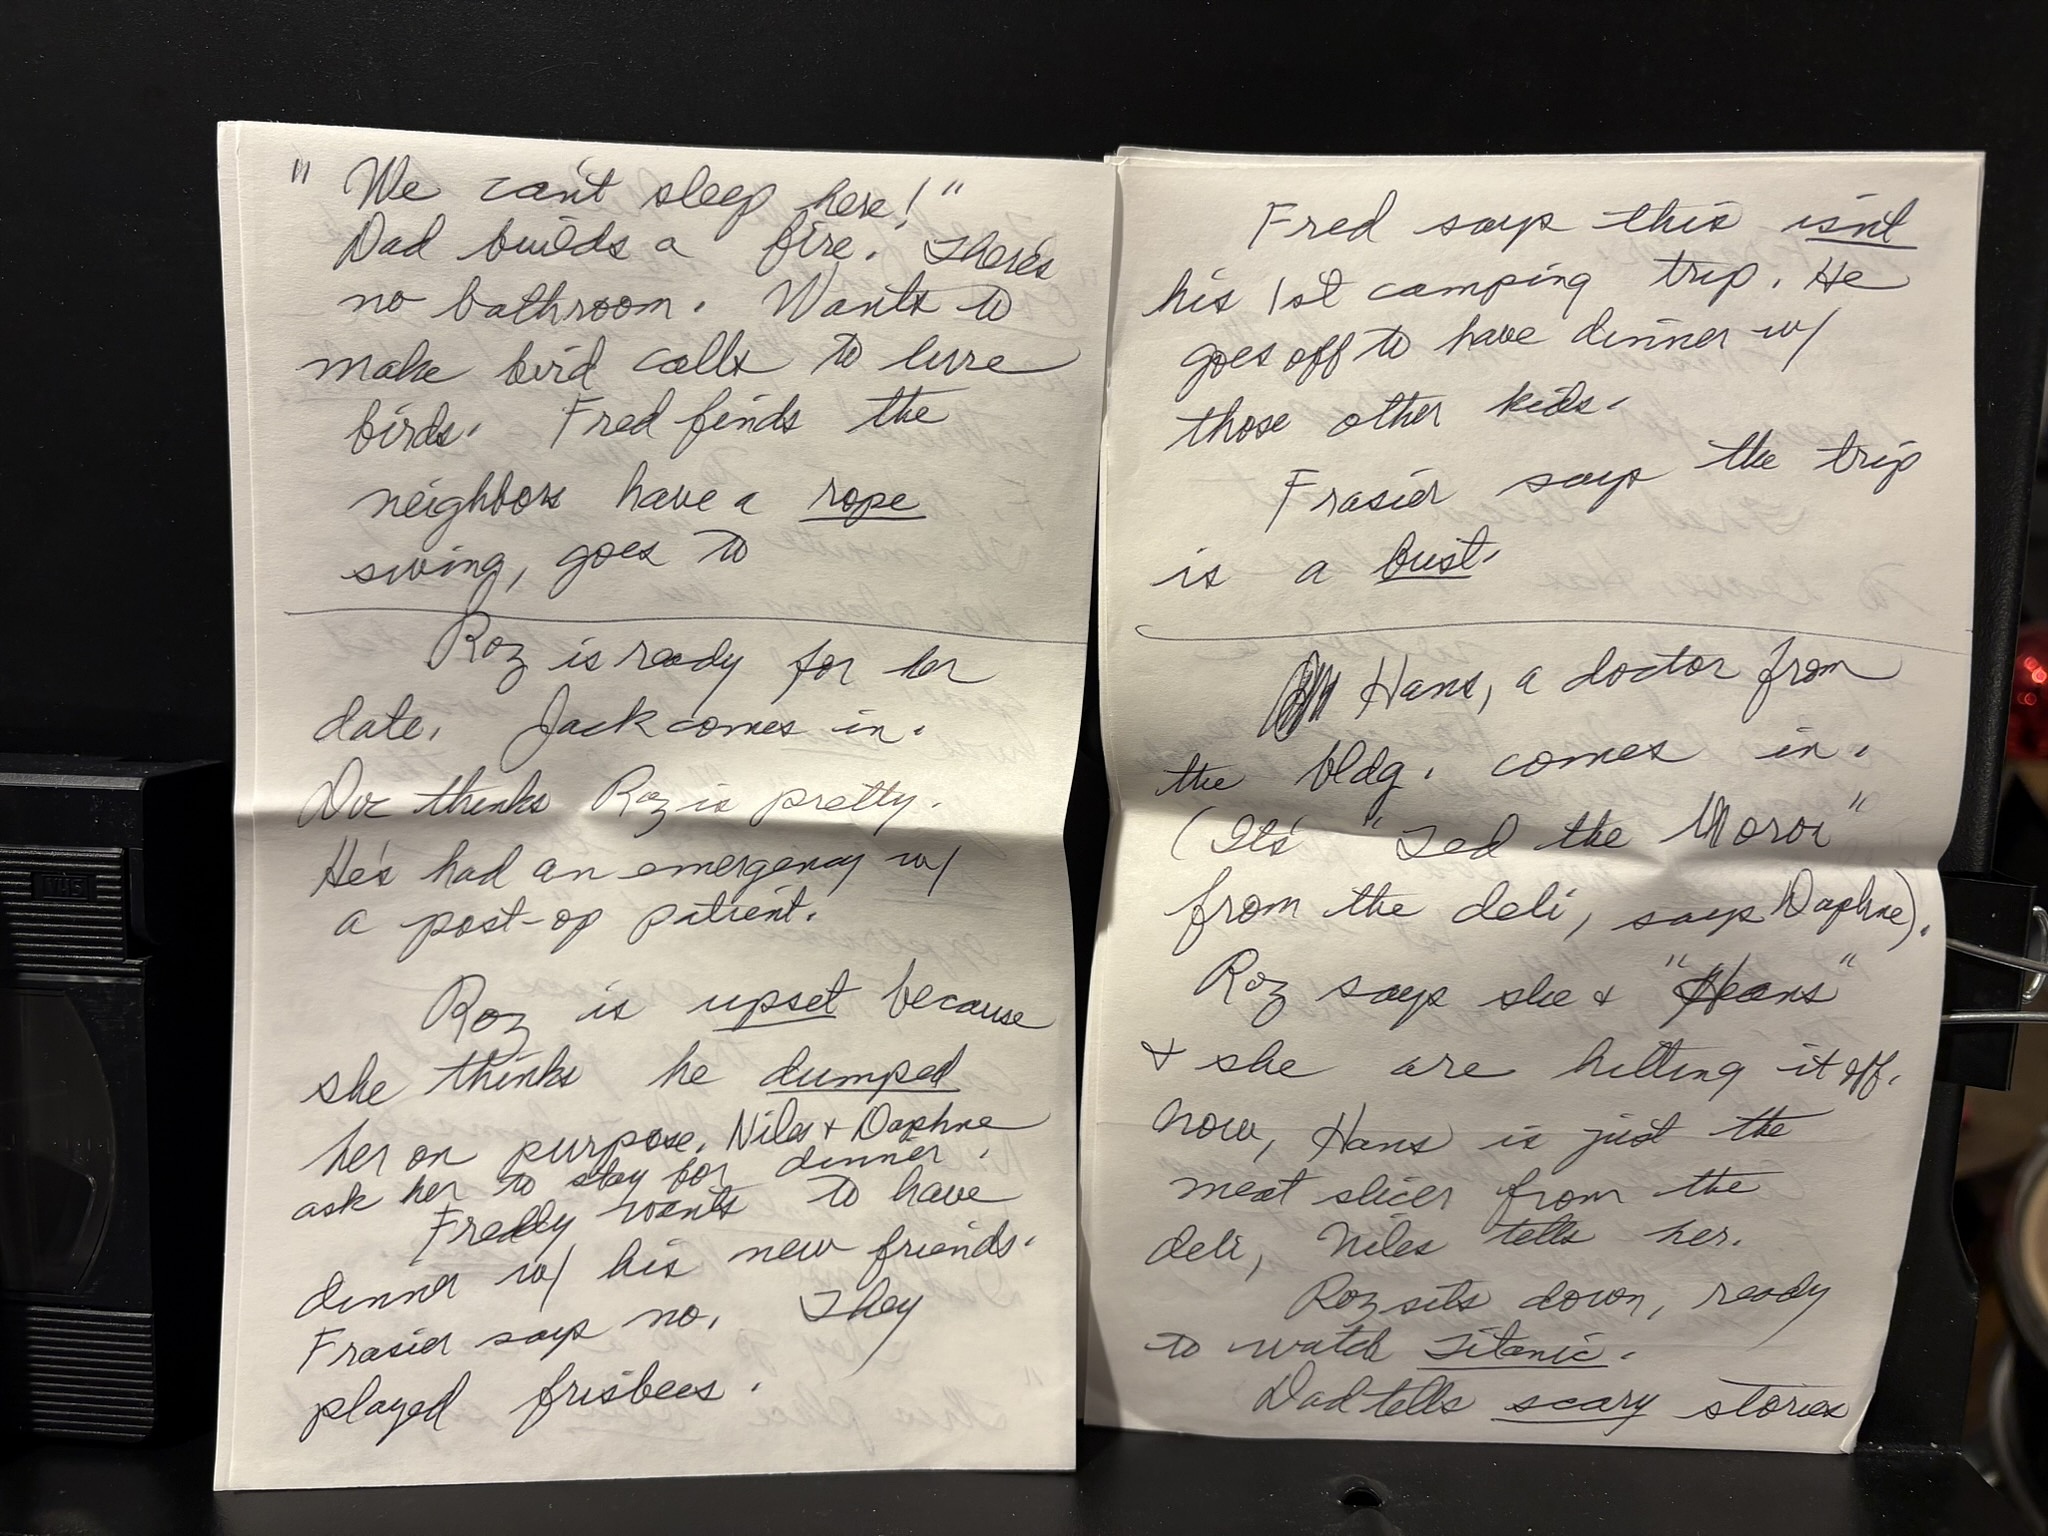 " We can't sleep here! "
Dad builds a fire. There's
no bathroom. Wants to
make bird calls to lure
birds. Fred finds the
neighbors have a rope
swing, goes to
Roz is ready for her
date. Jack comes in.
Doc thinks Roz is pretty.
He's had an emergency w/
a post-op patient.
Roz is upset because
she thinks he dumped
her on purpose. Niles + Daphne
ask her to stay for dinner.
Freddy wants to have
dinner w/ his new friends.
Frasier says no. They
played frisbees.
Fred says this isn't
his 1st camping trip. He
goes off to have dinner w/
those other kids.
Frasier says the trip
is a bust.
Hans, a doctor from
the bldg. comes in.
(It's "Ted the Moroi"
from the deli, says Daphne).
Roz says she + "Hans"
+ she are hitting it off.
Now, Hans is just the
meat slicer from the
deli, Niles tells her.
Roz sits down, ready
to watch Titanic.
Dad tells scary stories
VHS